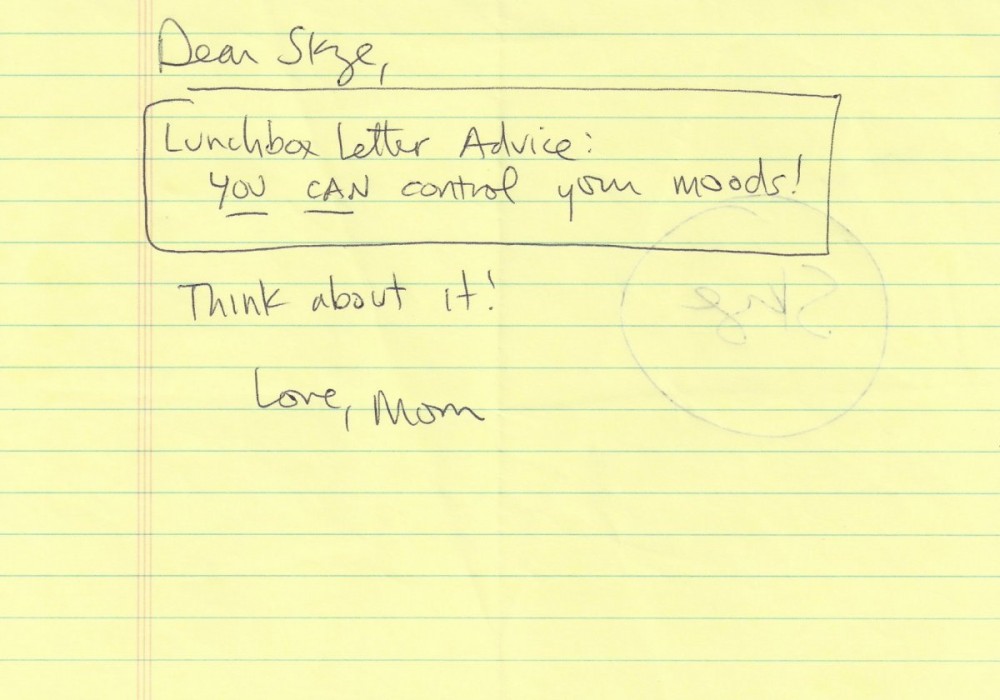 Dear Skye,
Lunchbox Letter Advice:
YOU CAN control your moods!
Think about it!
Skye
Love, Mom